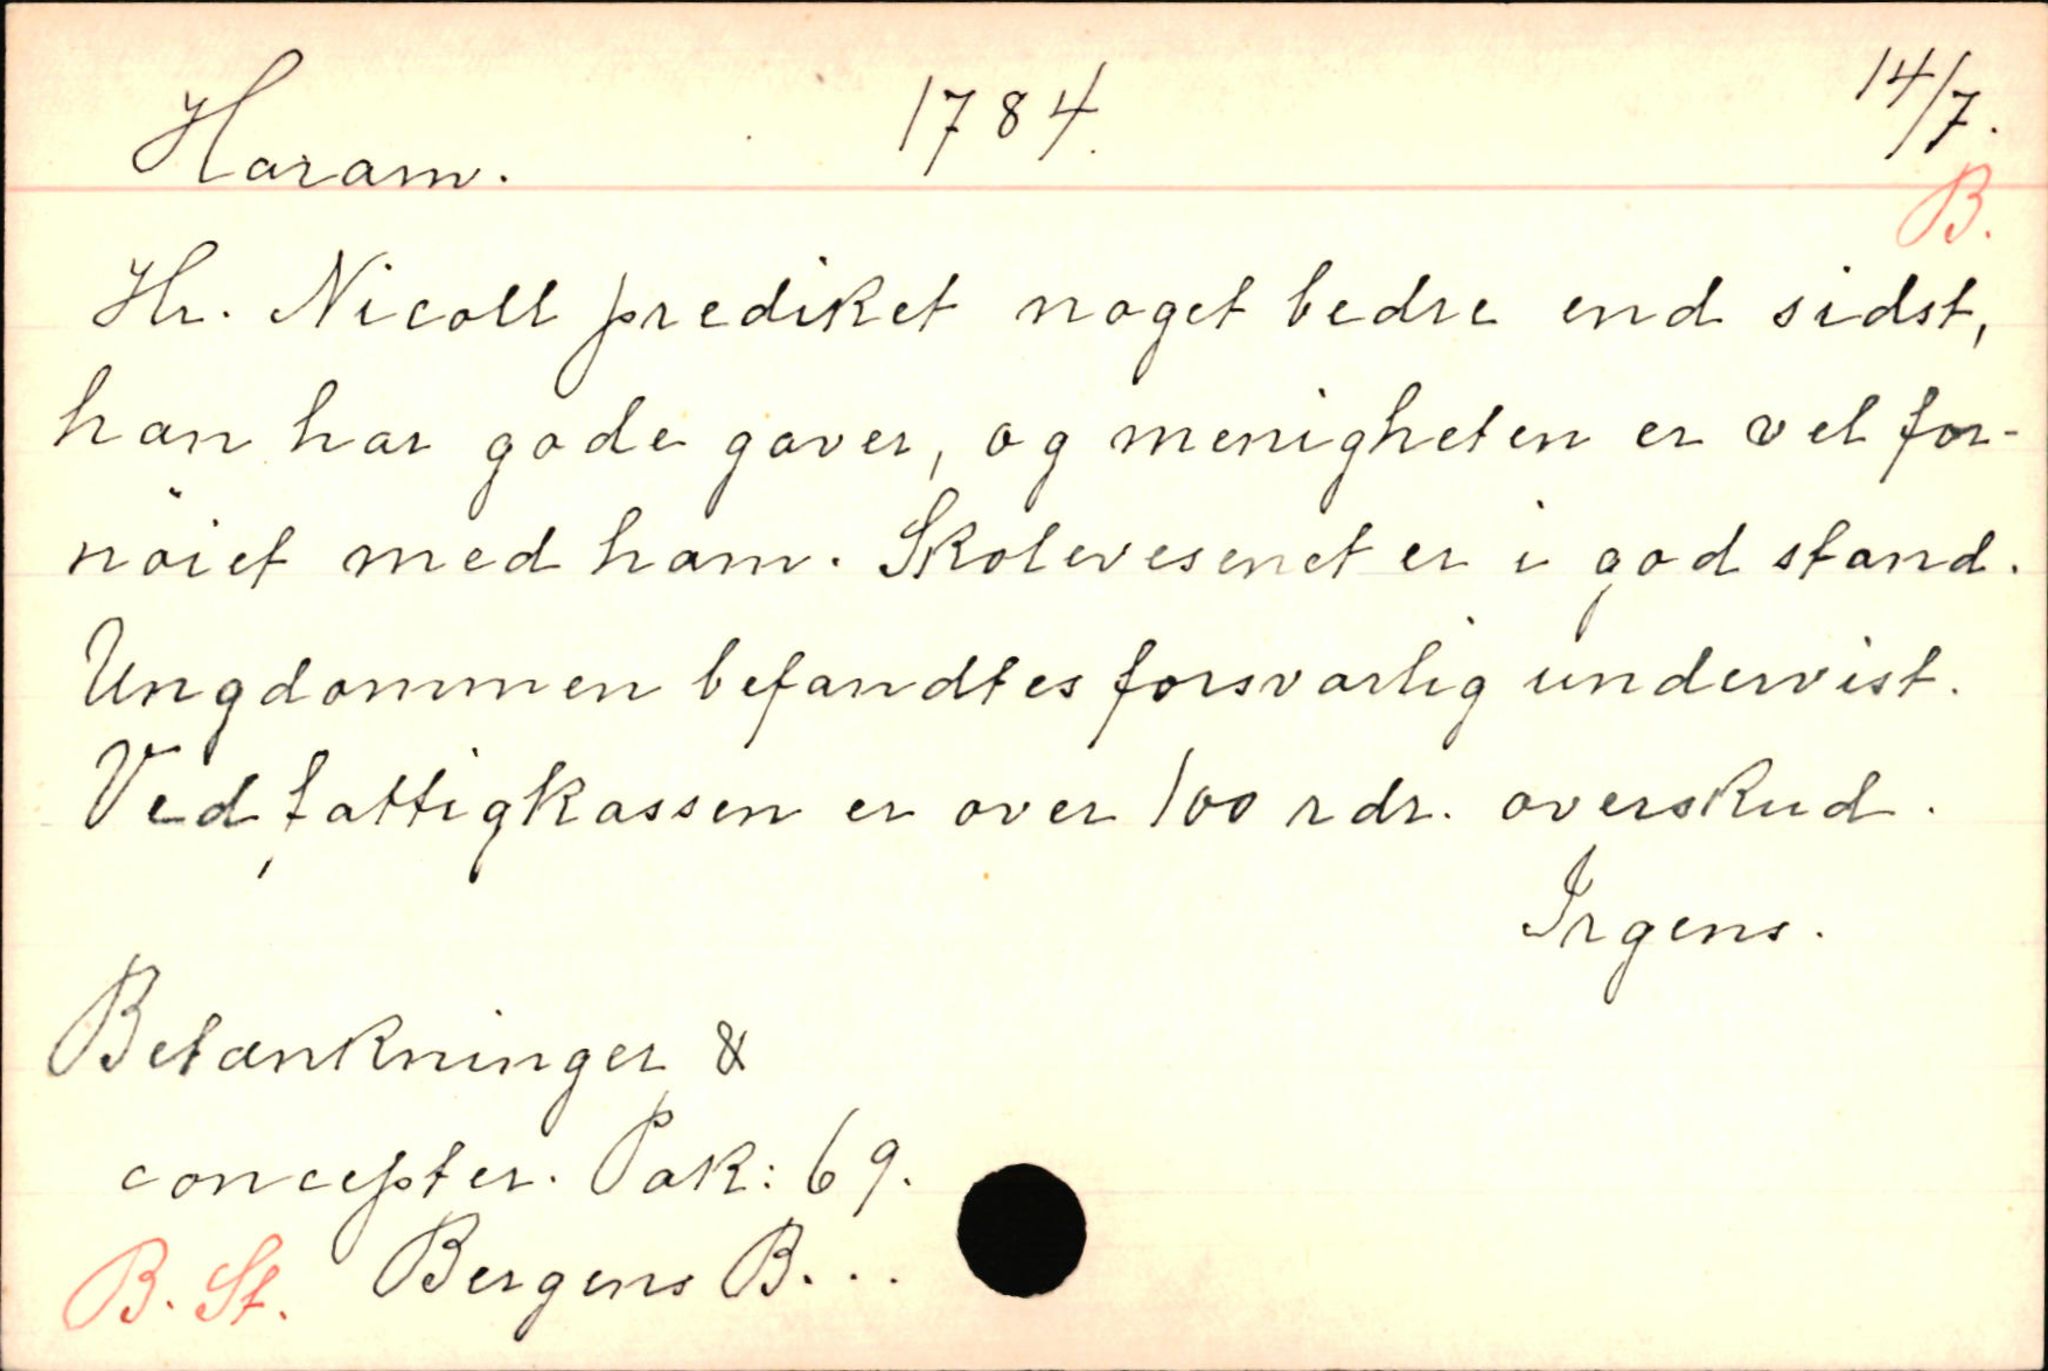 Haram. 1784. 14/7.
B.
Hr. Nicoll prediket noget bedre end sidst,
han har gode gaver, og menigheten er vel for-
nöiet med ham. Skolevesenet er i god stand.
Ungdommen befandtes forsvarlig undervist.
Ved fattigkassen er over 100 rdr. overskud.
Irgens.
Betænkninger &
concepter. Pak: 69.
B. St. Bergens B...